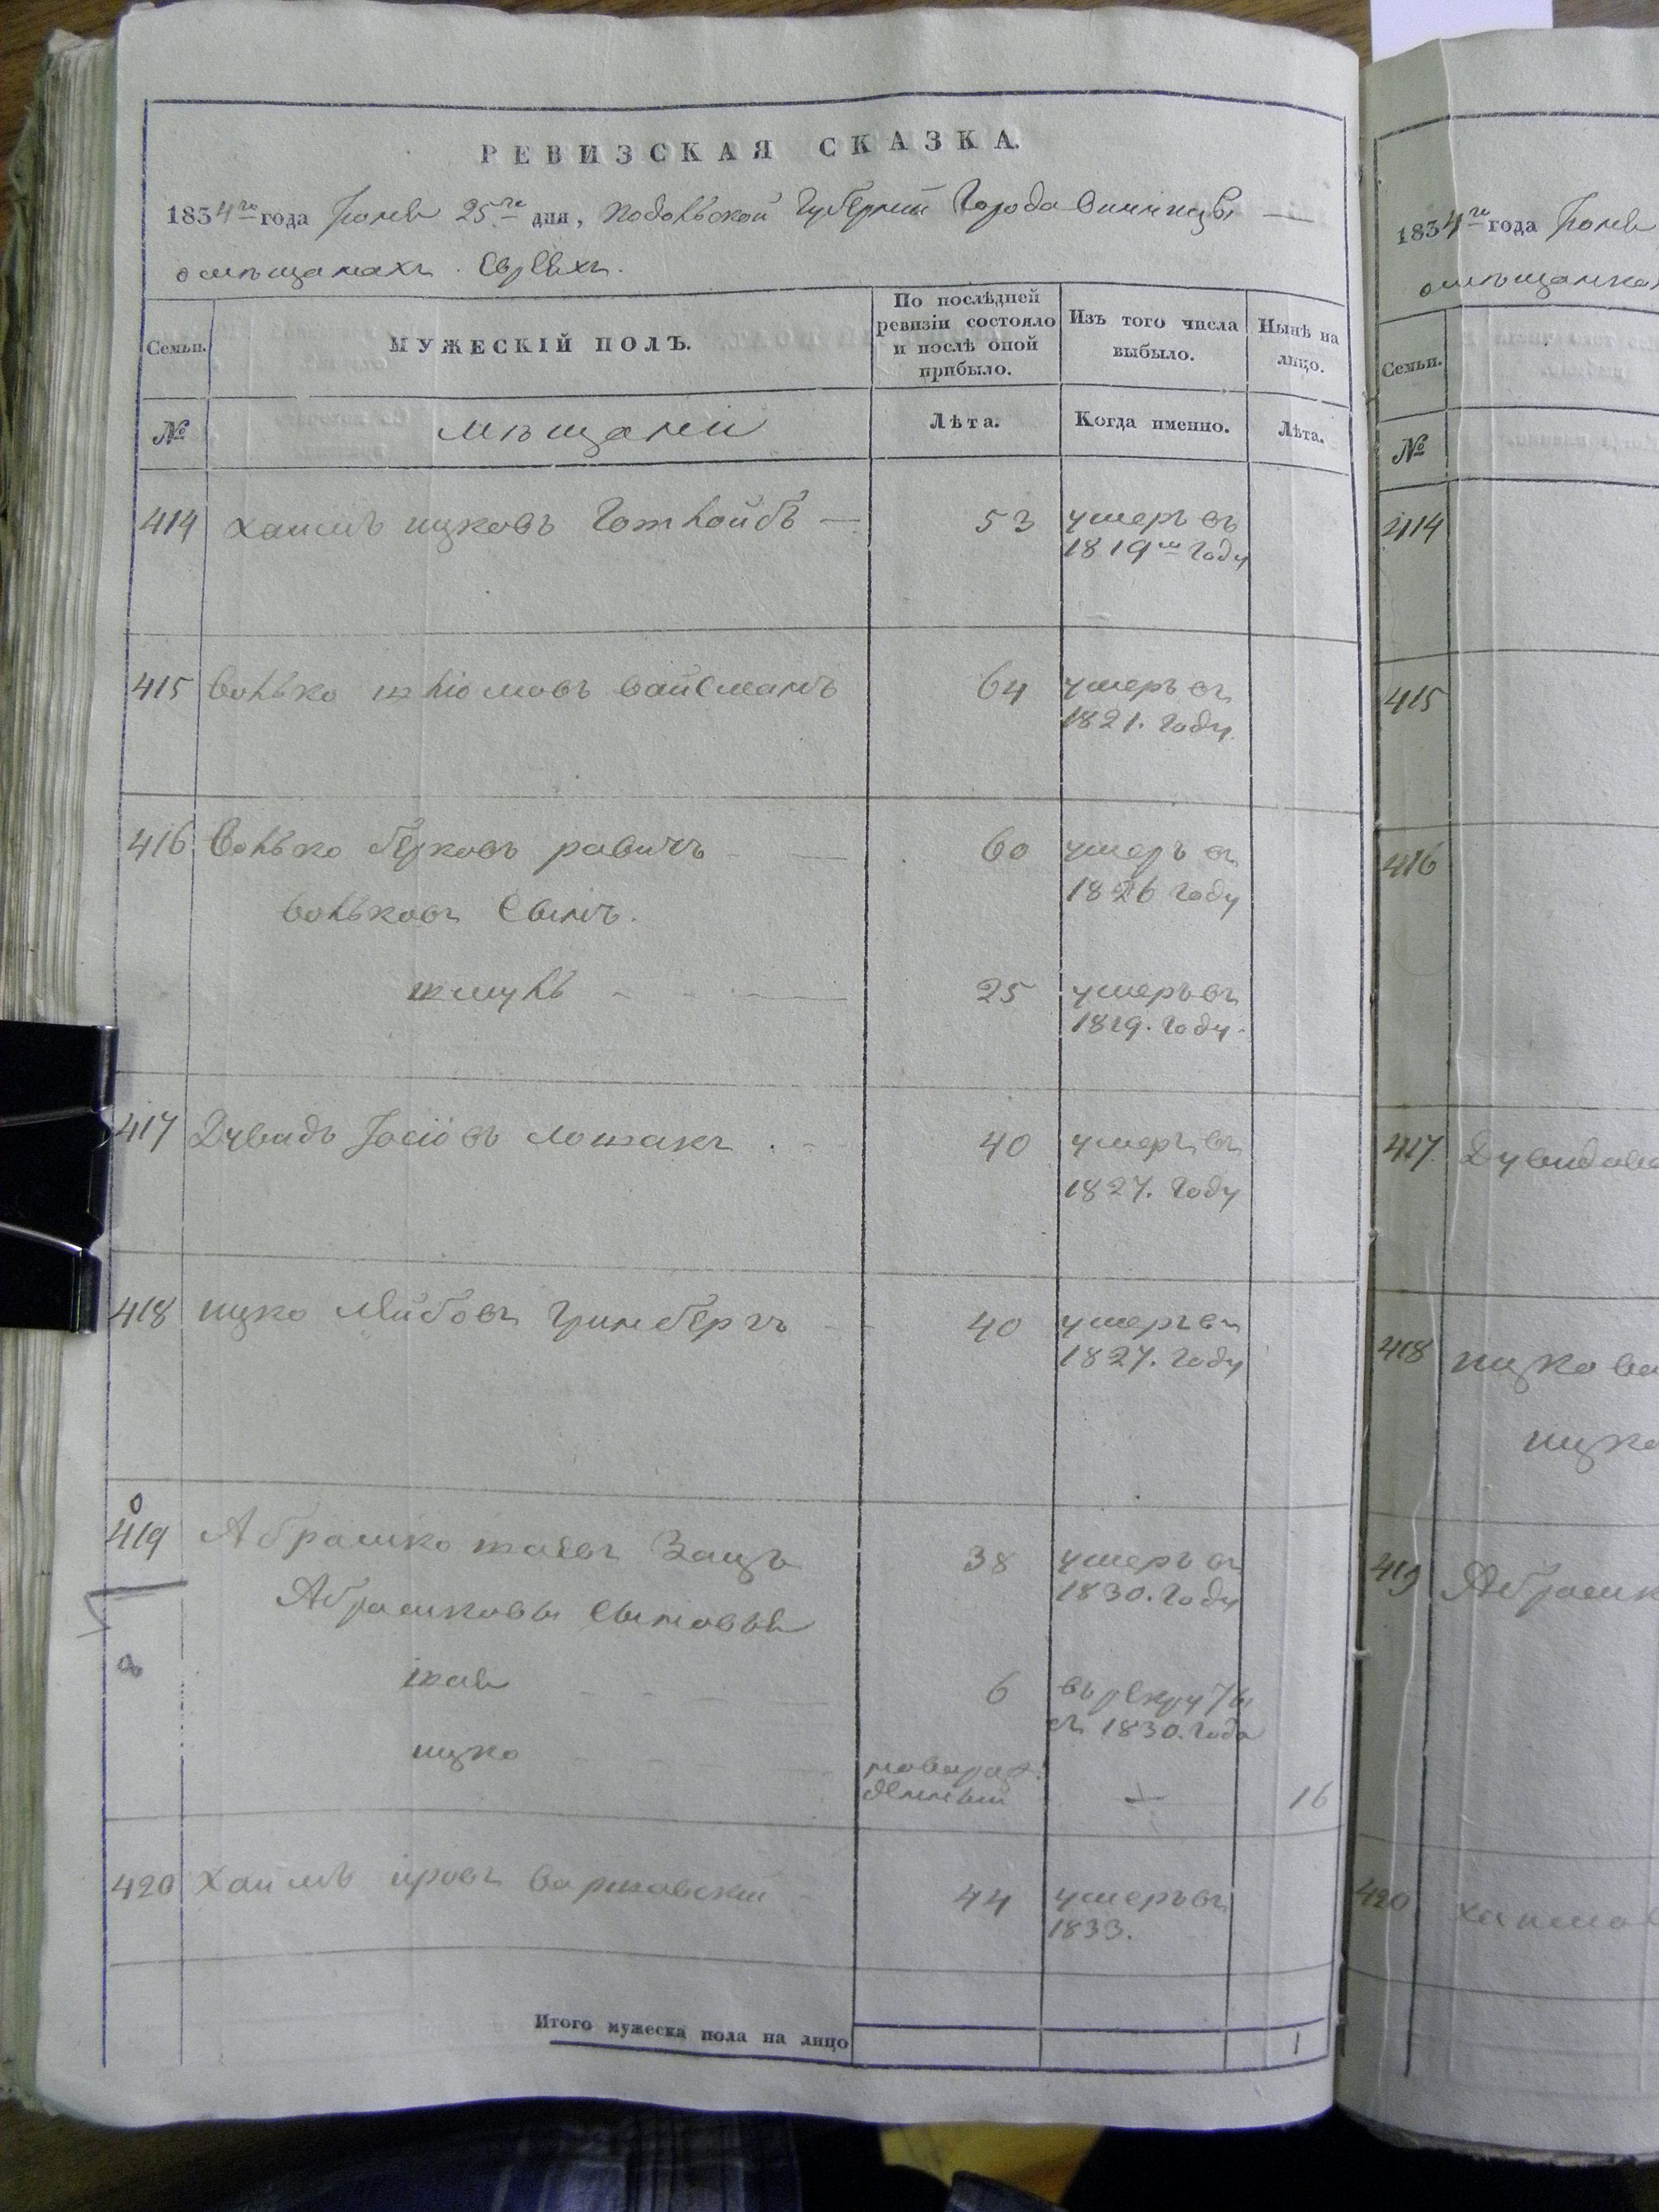 РЕВИЗСКАЯ СКАЗКА.
1834го года Іюня 25го дня, Подольской Губерніи Города Винницы
о мѣщанахъ Евреяхъ.
Семьи. МУЖЕСКІЙ ПОЛЪ. По послѣдней ревизіи состояло и послѣ оной прибыло. Изъ того числа выбыло. Нынѣ на лицо.
№ Мѣщани Лѣта. Когда именно. Лѣта.
414 Хаимъ Ицковъ Готлойбъ 53 умеръ въ
1819м году
415 Волько Шліомовъ Вайсманъ 64 умеръ въ
1821. году.
416 Волько Берковъ Равичъ 60 умеръ въ
1826 году
Вольковъ Сынъ.
Шмуль 25 умеръ въ
1829. году.
417 Дувидъ Іосіовъ Лошакъ 40 умеръ въ
1827. году
418 Ицко Лейбовъ Гринбергъ 40 умеръ въ
1827. году
419 Абрамко Шаевъ Зацъ 38 умеръ въ
1830. году
Абрамковы Сыновья
Шая 6 въ рекруты
съ 1830. года
Ицко новорож:
денный 16
420 Хаимъ Іровъ Варшавскій 44 умеръ въ
1833.
Итого мужеска пола на лицо 1
1834го года Іюня
о мѣщанка
Семьи.
№
414
415
416
417 Дувидова
418 Ицкова
Ицко
419 Абрамк
420 Хаимов